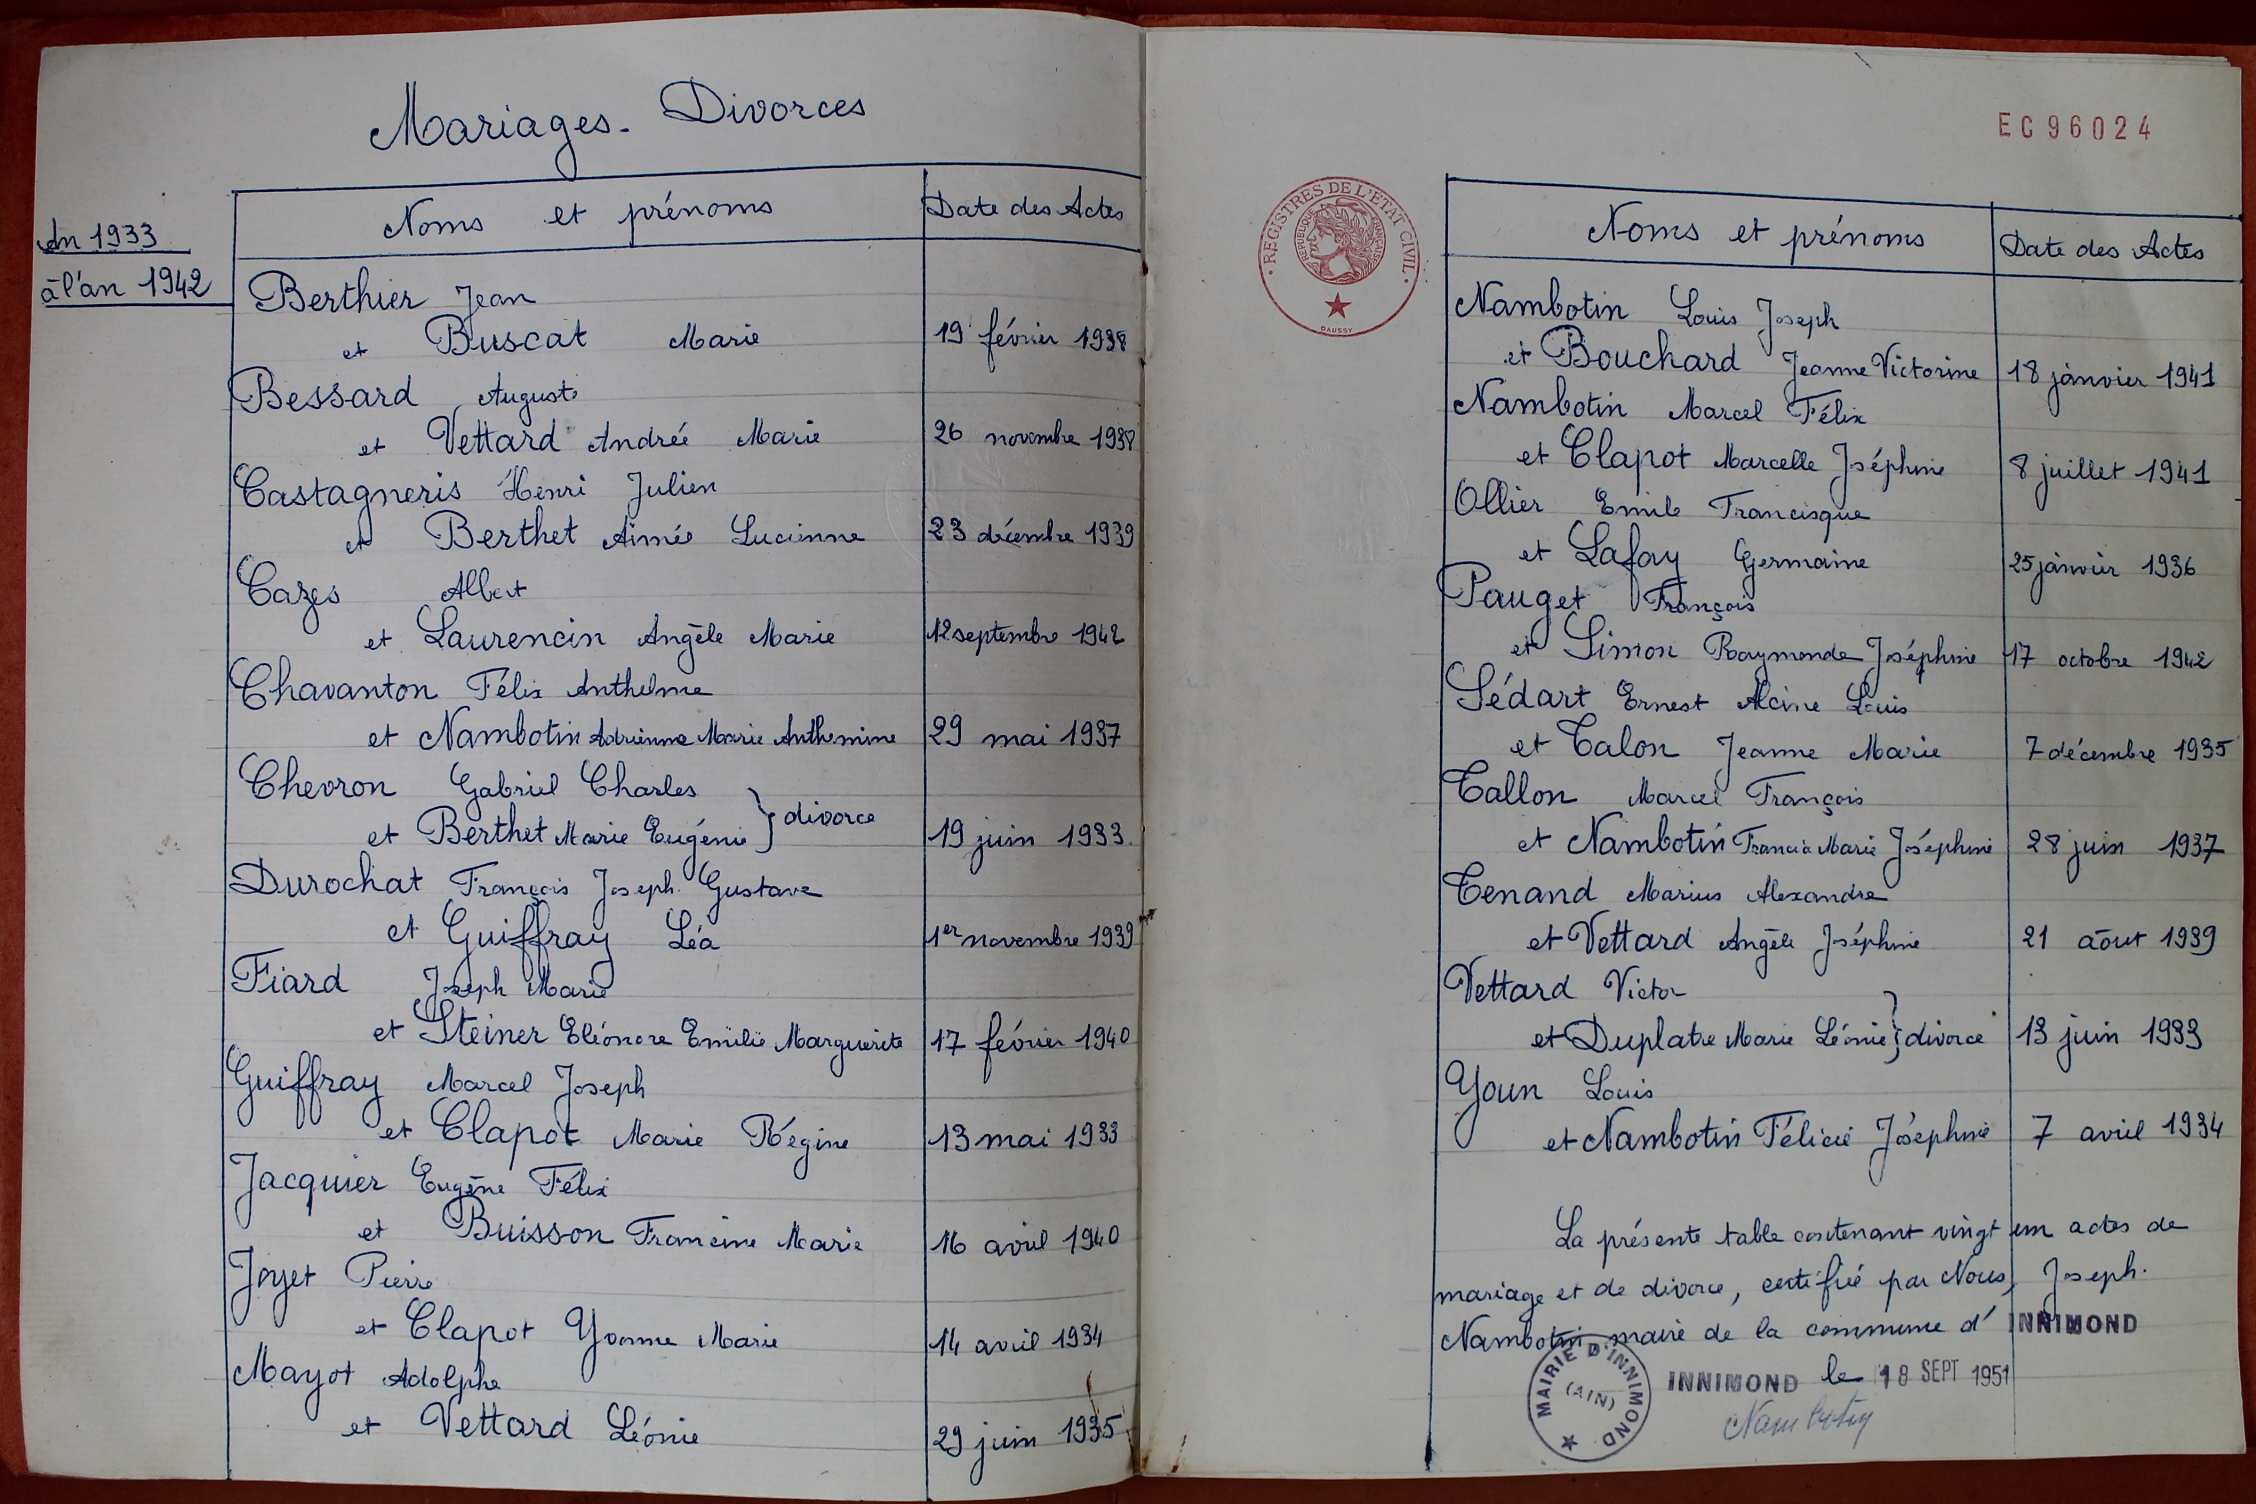 Mariages. Divorces
An 1933
à l'an 1942
Noms et prénoms Date des Actes
Berthier Jean
et Buscat Marie 19 février 1938
Bessard Auguste
et Vettard Andrée Marie 26 novembre 1938
Castagneris Henri Julien
et Berthet Aimée Lucienne 23 décembre 1939
Cazes Albert
et Laurencin Angèle Marie 12 septembre 1942
Chavanton Félix Anthelme
et Nambotin Adrienne Marie Anthemine 29 mai 1937
Chevron Gabriel Charles
et Berthet Marie Eugénie } divorce 19 juin 1933.
Durochat François Joseph Gustave
et Guiffray Léa 1er novembre 1939
Fiard Joseph Marie
et Steiner Eléonore Emilie Marguerite 17 février 1940
Guiffray Marcel Joseph
et Clapot Marie Régine 13 mai 1933
Jacquier Eugène Félix
et Buisson Francine Marie 16 avril 1940
Joyet Pierre
et Clapot Yvonne Marie 14 avril 1934
Mayot Adolphe
et Vettard Léonie 29 juin 1935
EC96024
REGISTRES DE L'ETAT CIVIL
REPUBLIQUE FRANÇAISE
DAUSSY
Noms et prénoms Date des Actes
Nambotin Louis Joseph
et Bouchard Jeanne Victorine 18 janvier 1941
Nambotin Marcel Félix
et Clapot Marcelle Joséphine 8 juillet 1941
Ollier Emile Francisque
et Lafay Germaine 25 janvier 1936
Pauget François
et Simon Raymonde Joséphine 17 octobre 1942
Sédart Ernest Alcine Louis
et Talon Jeanne Marie 7 décembre 1935
Tallon Marcel François
et Nambotin Francia Marie Joséphine 28 juin 1937
Tenand Marius Alexandre
et Vettard Angèle Joséphine 21 août 1939
Vettard Victor
et Duplatre Marie Léonie } divorce 13 juin 1933
Youn Louis
et Nambotin Félicie Joséphine 7 avril 1934
La présente table contenant vingt un actes de
mariage et de divorce, certifié par Nous, Joseph.
Nambotin maire de la commune d' INNIMOND
INNIMOND le 18 SEPT 1951
MAIRIE D'INNIMOND
(AIN)
Nambotin